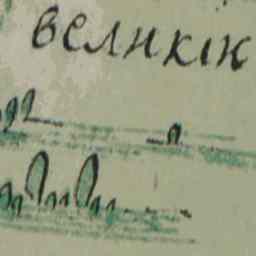 великік